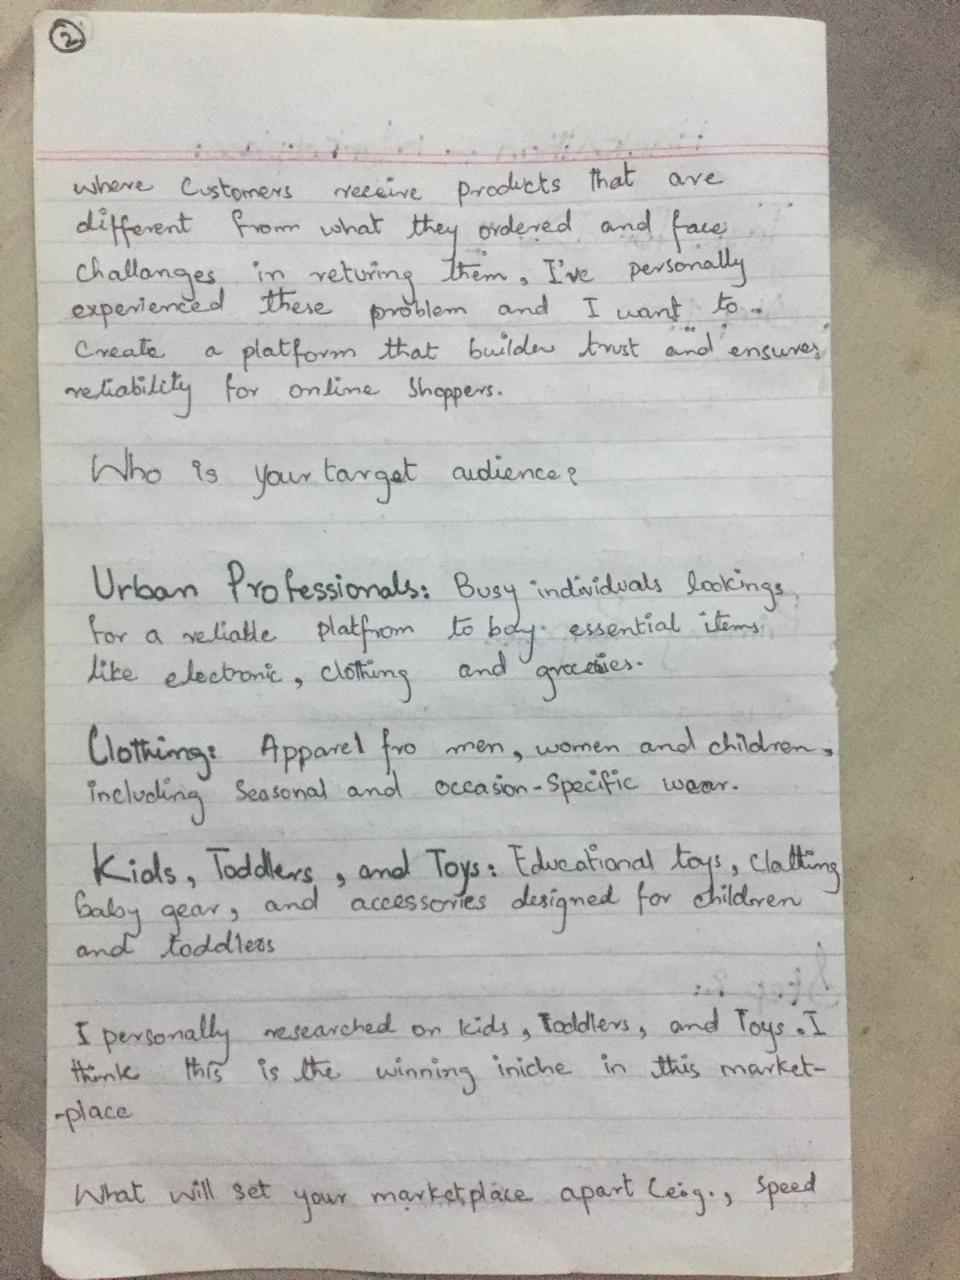 2
where Customers receive products that are
different from what they ordered and face
challanges in returing them, I've personally
experienced these problem and I want to
Create a platform that builder trust and ensures
reliability for online Shoppers.
Who is your target audience?
Urban Professionals: Busy individuals lookings
for a reliable platfrom to boy essential items
like electronic, clothing and groceries.
Clothing: Apparel fro men, women and children,
including Seasonal and occasion-Specific wear.
Kids, Toddlers, and Toys: Educational toys, Clothing
baby gear, and accessories designed for children
and toddlers
I personally researched on kids, Toddlers, and Toys. I
think this is the winning iniche in this market-
-place
What will set your marketplace apart (e.g., Speed